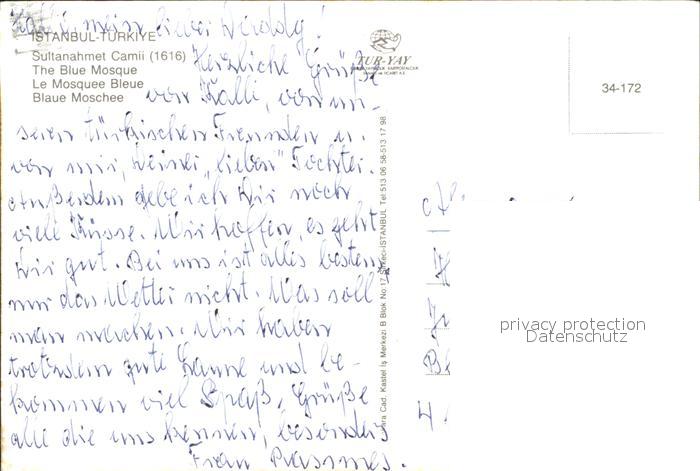 Hallo, mein lieber Daddy!
ISTANBUL-TÜRKIYE
Sultanahmet Camii (1616)
The Blue Mosque
Le Mosquee Bleue
Blaue Moschee
Herzliche Grüße
von Kalli, von un-
seren türkischen Freunden u.
von mir, Deiner „lieben" Tochter.
Außerdem gebe ich Dir noch
viele Küsse. Wir hoffen, es geht
Dir gut. Bei uns ist alles bestens
nur das Wetter nicht. Was soll
man machen. Wir haben
trotzdem gute Laune und be-
kommen viel Spaß. Grüße
alle die uns kennen, besonders
Frau
TUR-YAY
34-172
Cad. Kastel İş Merkezi B Blok No:17 Sirkeci-İSTANBUL Tel:513 06 58-513 17 98
privacy protection
Datenschutz